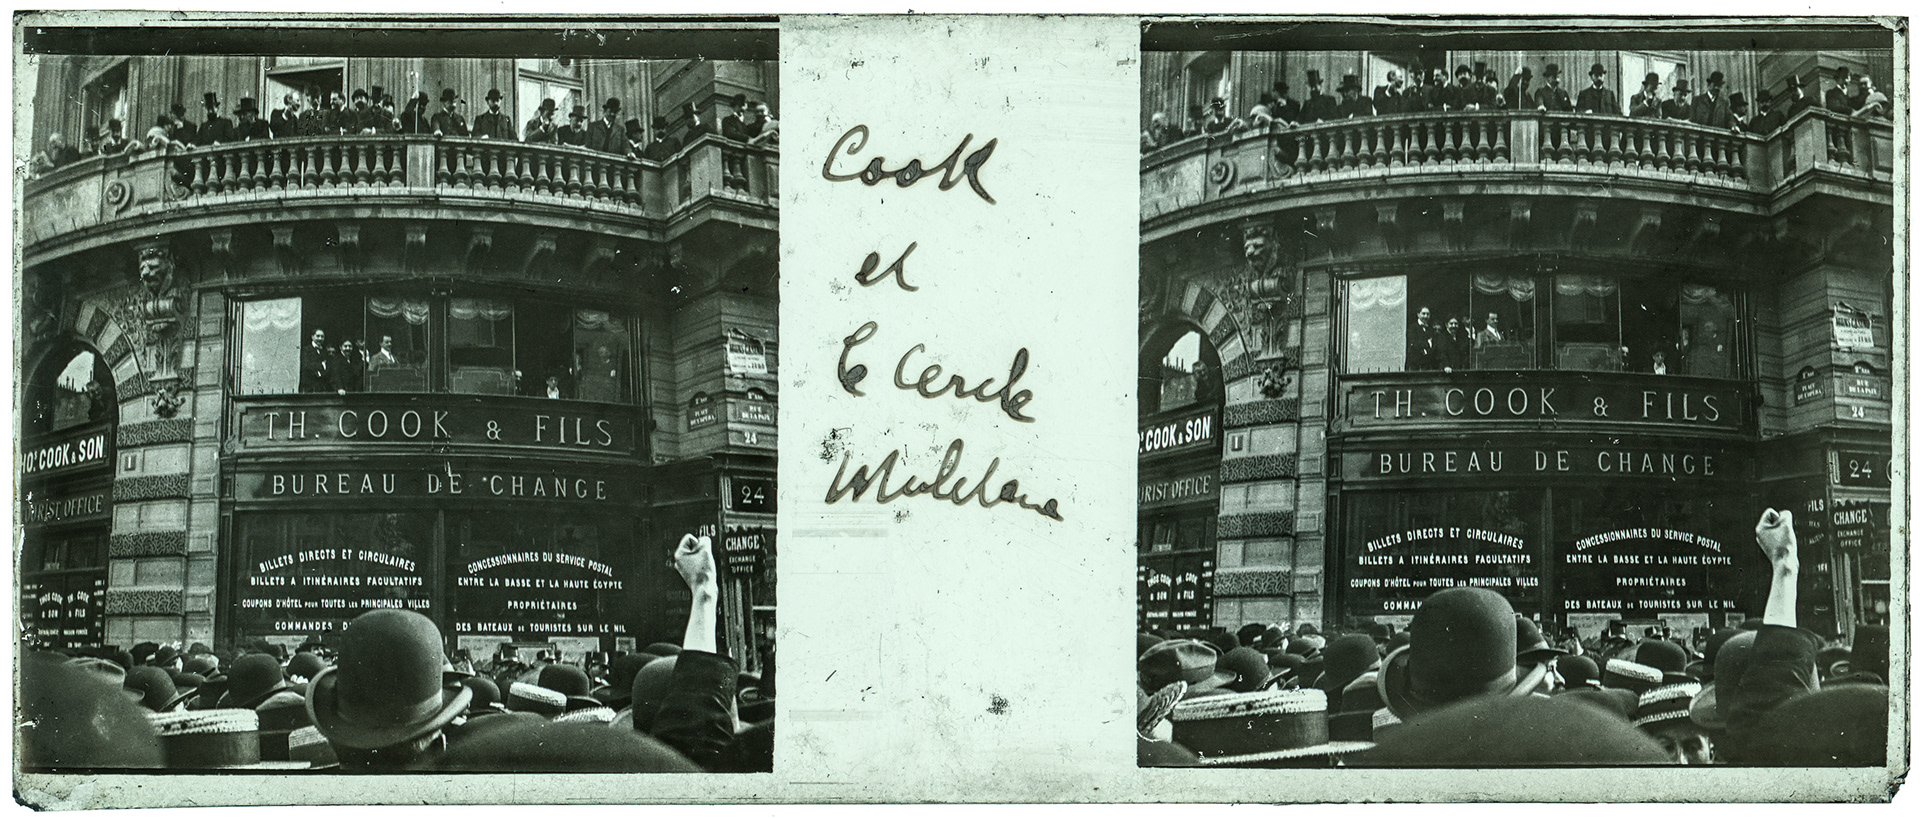 Cook
et
le Cercle
TH. COOK & FILS
HOS COOK & SON
BUREAU DE CHANGE
URIST OFFICE
PLACE
DE L'OPÉRA
RUE
DE LA PAIX
24
24
FILS
CHANGE
EXCHANGE
OFFICE
BILLETS DIRECTS ET CIRCULAIRES
BILLETS A ITINÉRAIRES FACULTATIFS
COUPONS D'HÔTEL POUR TOUTES LES PRINCIPALES VILLES
COMMANDES D
CONCESSIONNAIRES DU SERVICE POSTAL
ENTRE LA BASSE ET LA HAUTE ÉGYPTE
PROPRIÉTAIRES
DES BATEAUX DE TOURISTES SUR LE NIL
THOS COOK
& SON
TH. COOK
& FILS
TH. COOK & FILS
COOK & SON
BUREAU DE CHANGE
URIST OFFICE
24
24
FILS
CHANGE
EXCHANGE
OFFICE
BILLETS DIRECTS ET CIRCULAIRES
BILLETS A ITINÉRAIRES FACULTATIFS
COUPONS D'HÔTEL POUR TOUTES LES PRINCIPALES VILLES
COMMA
CONCESSIONNAIRES DU SERVICE POSTAL
ENTRE LA BASSE ET LA HAUTE ÉGYPTE
PROPRIÉTAIRES
DES BATEAUX DE TOURISTES SUR LE NIL
THOS COOK
& SON
TH. COOK
& FILS